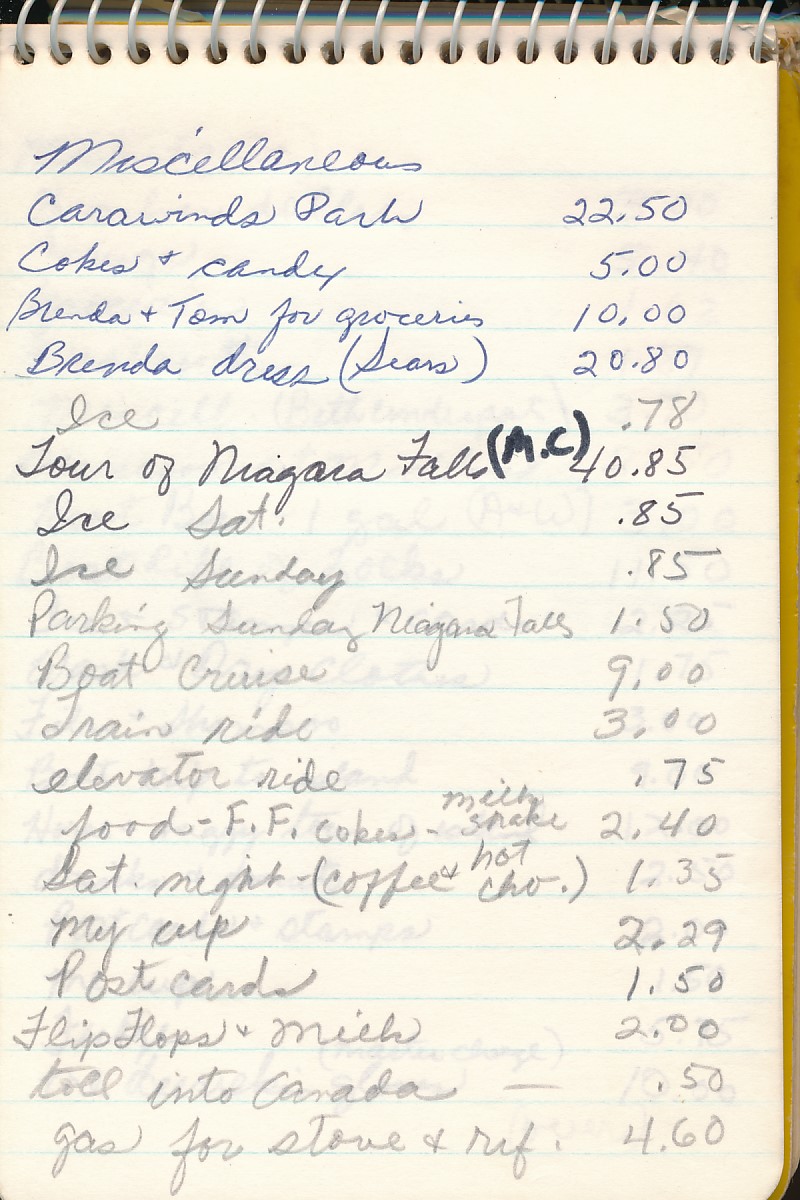 Miscellaneous
Carawinds Park 22.50
Cokes + candy 5.00
Brenda + Tom for groceries 10.00
Brenda dress (Sears) 20.80
Ice .78
Tour of Niagara Falls (M.C) 40.85
Ice Sat. .85
Ice Sunday .85
Parking Sunday Niagara Falls 1.50
Boat Cruise 9.00
Train ride 3.00
elevator ride .75
food - F.F. cokes - milk shake 2.40
Sat. night - (coffee + hot cho.) 1.35
My cup 2.29
Post cards 1.50
Flip Flops + Milk 2.00
toll into Canada — .50
gas for stove + ref. 4.60